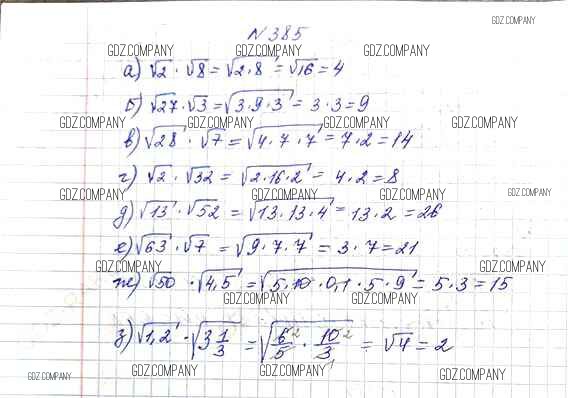 GDZ.COMPANY
№385
GDZ.COMPANY GDZ.COMPANY GDZ.COMPANY
а) √2 · √8 = √2·8 = √16 = 4
б) √27 · √3 = √3·9·3 = 3·3 = 9
GDZ.COMPANY GDZ.COMPANY GDZ.COMPANY GDZ.COMPANY
в) √28 · √7 = √4·7·7 = 7·2 = 14
г) √2 · √32 = √2·16·2 = 4·2 = 8
GDZ.COMPANY GDZ.COMPANY GDZ.COMPANY GDZ.COMPANY
д) √13 · √52 = √13·13·4 = 13·2 = 26
е) √63 · √7 = √9·7·7 = 3·7 = 21
GDZ.COMPANY GDZ.COMPANY
ж) √50 · √4,5 = √5·10·0,1·5·9 = 5·3 = 15
GDZ.COMPANY GDZ.COMPANY
з) √1,2 · √3 1/3 = √6²/5 · 10²/3₁ = √4 = 2
GDZ.COMPANY GDZ.COMPANY GDZ.COMPANY